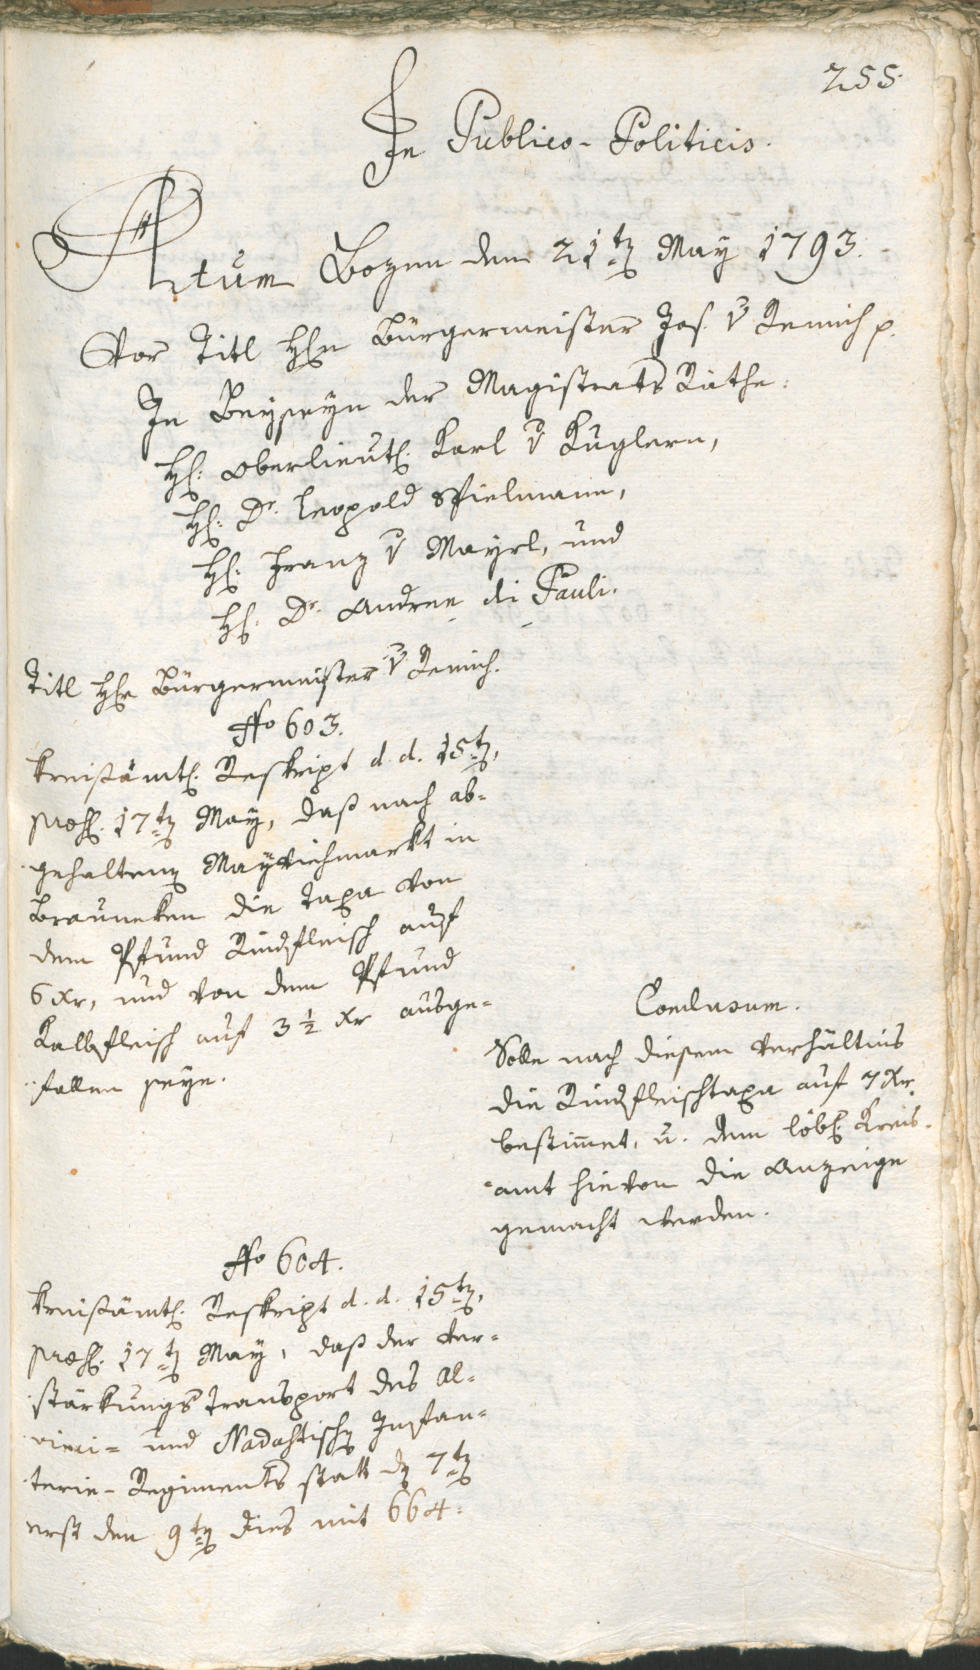 255.
In Publico-Politicis.
Actum Bozen den 21ten May 1793.
Vor Titl Hrn Bürgermeister Jos. v Remich p.
In Beyseyn der Magistrats Räthe:
H: Oberlieut: Karl v Kuglern,
H: Dr. Leopold Spielmann,
H: Franz v Mayrl, und
H: Dr. Andree di Pauli.
Titl Hr Bürgermeister v Remich.
No 603.
Kreisämtl. Reskript d. d. 15ten,
præs. 17ten May, daß nach ab-
gehaltenen Mayviehmarkt in
Brauneken die Taxa von
dem Pfund Rindfleisch auf
6 xr, und von dem Pfund
Kalbfleisch auf 3 ½ xr ausge-
fallen seye.
Conclusum.
Solle nach diesem Verhältnis
die Rindfleischtaxa auf 7 xr
bestimmet, u. dem löbl. Kreis-
amt hievon die Anzeige
gemacht werden.
No 604.
Kreisämtl. Reskript d. d. 15ten,
præs. 17ten May, daß der Ver-
stärkungs Transport des Al-
vinzi- und Nadastischen Infan-
terie-Regiments statt den 7ten
erst den 9ten dies mit 664: